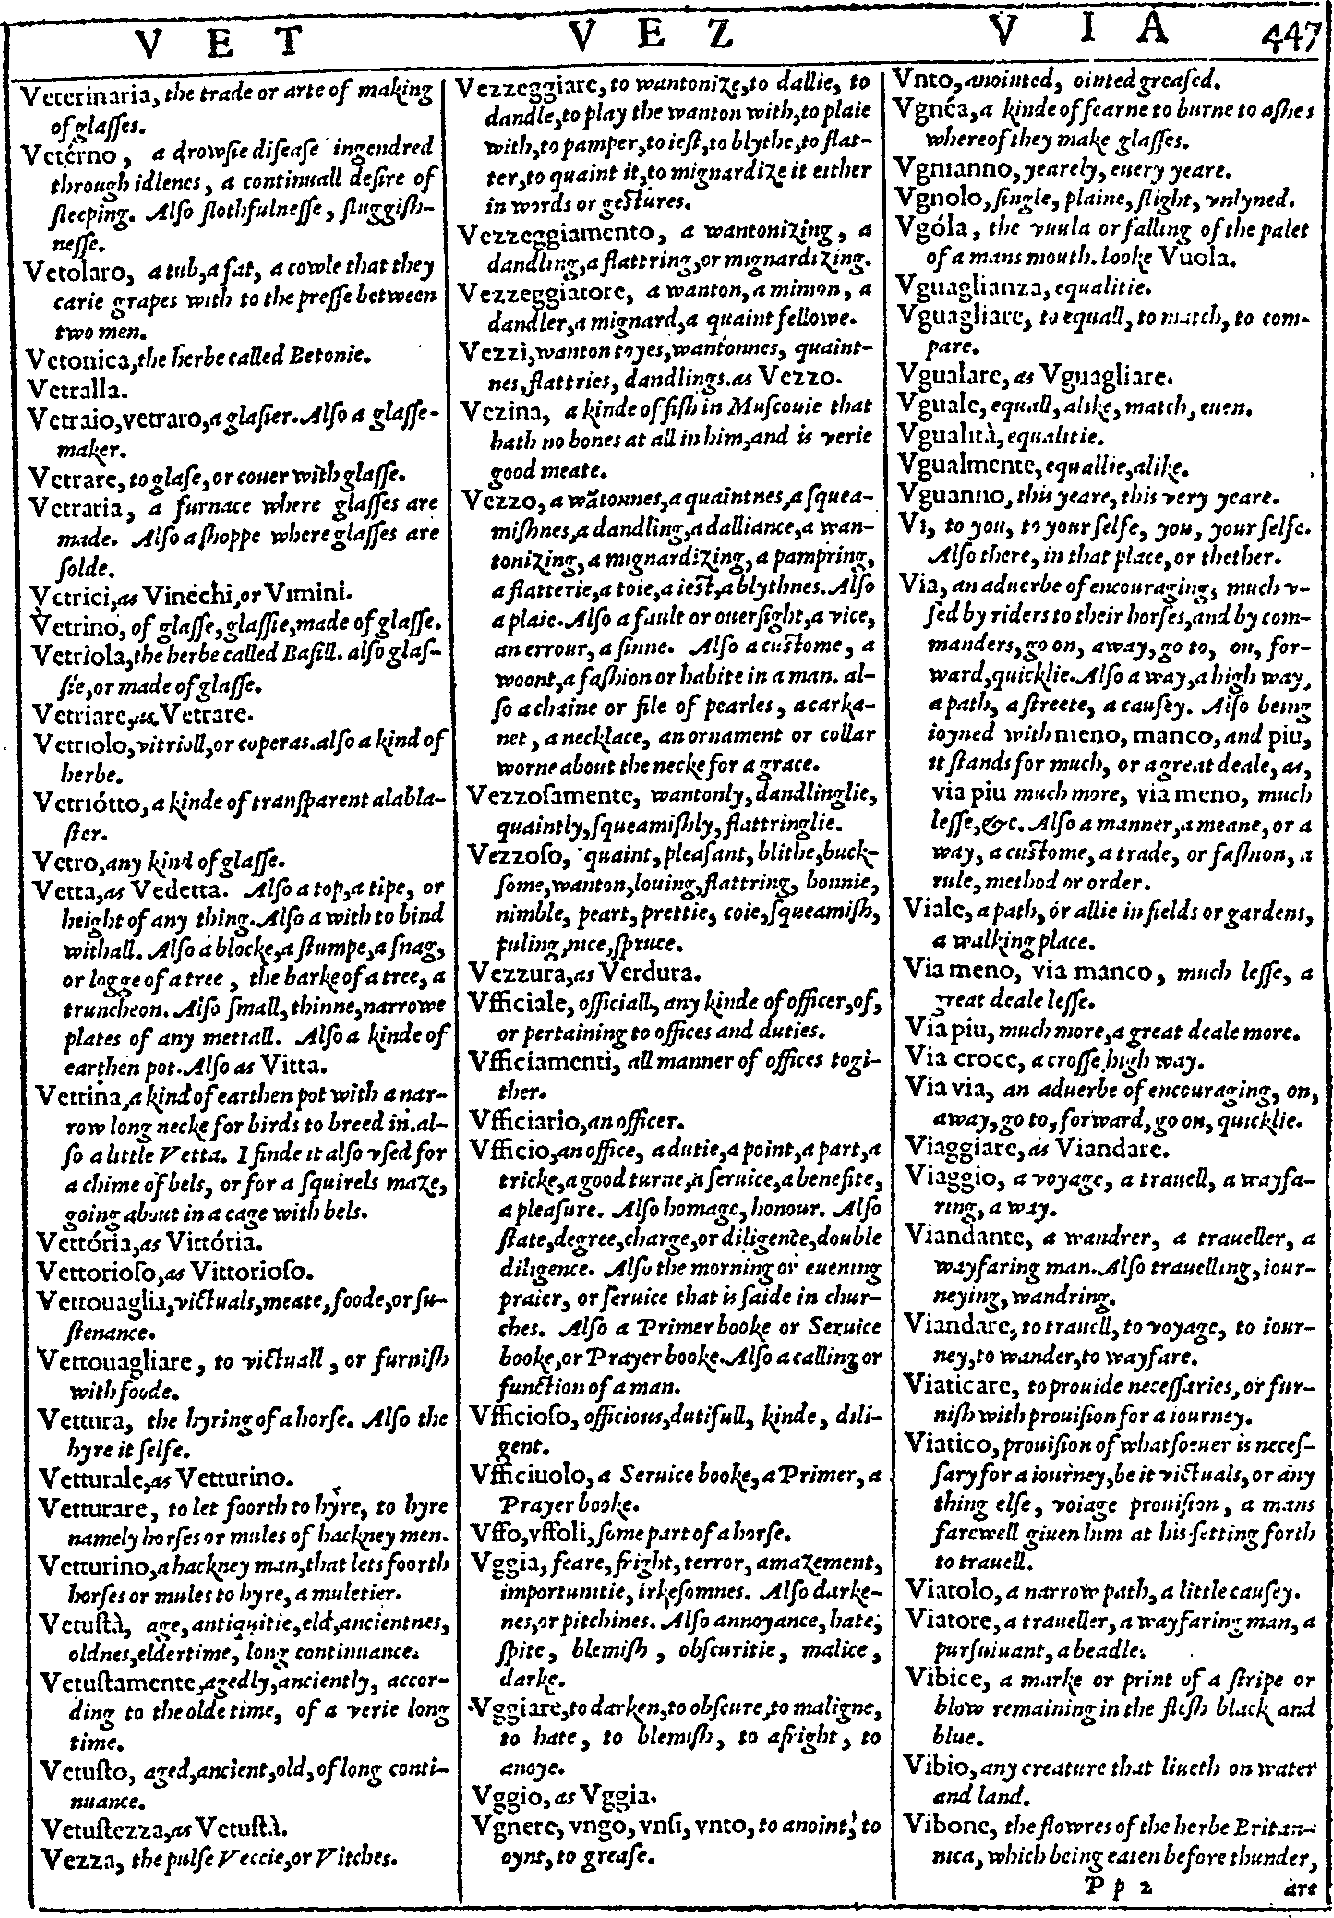 V E T
V E Z
V I A
447
Veterinaria, the trade or arte of making
of glaſſes.
Vetérno, a drowſie diſeaſe ingendred
through idlenes, a continuall deſire of
ſleeping. Alſo ſlothfulneſſe, ſluggiſh-
neſſe.
Vetolaro, a tub, a fat, a cowle that they
carie grapes with to the preſſe between
two men.
Vetonica, the herbe called Betonie.
Vetralla.
Vetraio, vetraro, a glaſier. Alſo a glaſſe-
maker.
Vetrare, to glaſe, or couer with glaſſe.
Vetraria, a furnace where glaſſes are
made. Alſo a ſhoppe where glaſſes are
ſolde.
Vetrici, as Vinéchi, or Vimini.
Vetrino, of glaſſe, glaſſie, made of glaſſe.
Vetriola, the herbe called Baſill. alſo glaſ-
ſie, or made of glaſſe.
Vetriare, as Vetrare.
Vetriolo, vitrioll, or coperas. alſo a kind of
herbe.
Vetriótto, a kinde of tranſparent alabla-
ſter.
Vetro, any kind of glaſſe.
Vetta, as Vedetta. Alſo a top, a tipe, or
height of any thing. Alſo a with to bind
withall. Alſo a blocke, a ſtumpe, a ſnag,
or logge of a tree, the barke of a tree, a
truncheon. Alſo ſmall, thinne, narrowe
plates of any mettall. Alſo a kinde of
earthen pot. Alſo as Vitta.
Vettina, a kind of earthen pot with a nar-
row long necke for birds to breed in. al-
ſo a little Vetta. I finde it alſo vſed for
a chime of bels, or for a ſquirels maze,
going about in a cage with bels.
Vettória, as Vittória.
Vettorioſo, as Vittorioſo.
Vettouaglia, victuals, meate, foode, or ſu-
ſtenance.
Vettouagliare, to victuall, or furniſh
with foode.
Vettura, the hyring of a horſe. Alſo the
hyre it ſelfe.
Vetturale, as Vetturino.
Vetturare, to let foorth to hyre, to hyre
namely horſes or mules of hackney men.
Vetturino, a hackney man, that lets foorth
horſes or mules to hyre, a muletier.
Vetuſtà, age, antiquitie, eld, ancientnes,
oldnes, elder time, long continuance.
Vetuſtamente, agedly, anciently, accor-
ding to the olde time, of a verie long
time.
Vetuſto, aged, ancient, old, of long conti-
nuance.
Vetuſtezza, as Vetuſtà.
Vezza, the pulſe Veccie, or Vitches.
Vezzeggiare, to wantonize, to dallie, to
dandle, to play the wanton with, to plaie
with, to pamper, to ieſt, to blythe, to flat-
ter, to quaint it, to mignardize it either
in words or geſtures.
Vezzeggiamento, a wantonizing, a
dandling, a flattring, or mignardizing.
Vezzeggiatore, a wanton, a minion, a
dandler, a mignard, a quaint fellowe.
Vezzi, wanton toyes, wantonnes, quaint-
nes, flattries, dandlings. as Vezzo.
Vezina, a kinde of fiſh in Muſcouie that
hath no bones at all in him, and is verie
good meate.
Vezzo, a wãtonnes, a quaintnes, a ſquea-
miſhnes, a dandling, a dalliance, a wan-
tonizing, a mignardizing, a pampring,
a flatterie, a toie, a ieſt, a blythnes. Alſo
a plaie. Alſo a fault or ouerſight, a vice,
an errour, a ſinne. Alſo a cuſtome, a
woont, a faſhion or habite in a man. al-
ſo a chaine or file of pearles, a carka-
net, a necklace, an ornament or collar
worne about the necke for a grace.
Vezzoſamente, wantonly, dandlinglie,
quaintly, ſqueamiſhly, flattringlie.
Vezzoſo, quaint, pleaſant, blithe, buck-
ſome, wanton, louing, flattring, bonnie,
nimble, peart, prettie, coie, ſqueamiſh,
puling, nice, ſpruce.
Vezzura, as Verdura.
Vfficiale, officiall, any kinde of officer, of,
or pertaining to offices and duties.
Vfficiamenti, all manner of offices togi-
ther.
Vfficiario, an officer.
Vfficio, an office, a dutie, a point, a part, a
tricke, a good turne, a ſeruice, a benefite,
a pleaſure. Alſo homage, honour. Alſo
ſtate, degree, charge, or diligence, double
diligence. Alſo the morning or euening
praier, or ſeruice that is ſaide in chur-
ches. Alſo a Primer booke or Seruice
booke, or Prayer booke. Alſo a calling or
function of a man.
Vfficioſo, officious, dutifull, kinde, dili-
gent.
Vfficiuolo, a Seruice booke, a Primer, a
Prayer booke.
Vffo, vffoli, ſome part of a horſe.
Vggia, feare, fright, terror, amazement,
importunitie, irkeſomnes. Alſo darke-
nes, or pitchines. Alſo annoyance, hate,
ſpite, blemiſh, obſcuritie, malice,
darke.
Vggiare, to darken, to obſcure, to maligne,
to hate, to blemiſh, to afright, to
anoye.
Vggio, as Vggia.
Vgnere, vngo, vnſi, vnto, to anoint, to
oynt, to greaſe.
Vnto, anointed, ointed greaſed.
Vgnéa, a kinde of fearne to burne to aſhes
whereof they make glaſſes.
Vgnianno, yearely, euery yeare.
Vgnolo, ſingle, plaine, ſlight, vnlyned.
Vgóla, the vuula or falling of the palet
of a mans mouth. looke Vuola.
Vguaglianza, equalitie.
Vguagliare, to equall, to match, to com-
pare.
Vgualare, as Vguagliare.
Vguale, equall, alike, match, euen.
Vgualità, equalitie.
Vgualmente, equallie, alike.
Vguanno, this yeare, this very yeare.
Vi, to you, to your ſelfe, you, your ſelfe.
Alſo there, in that place, or thether.
Via, an aduerbe of encouraging, much v-
ſed by riders to their horſes, and by com-
manders, go on, away, go to, on, for-
ward, quicklie. Alſo a way, a high way,
a path, a ſtreete, a cauſey. Alſo being
ioyned with meno, manco, and piu,
it ſtands for much, or a great deale, as,
via piu much more, via meno, much
leſſe, &c. Alſo a manner, a meane, or a
way, a cuſtome, a trade, or faſhion, a
rule, method or order.
Viale, a path, or allie in fields or gardens,
a walking place.
Via meno, via manco, much leſſe, a
great deale leſſe.
Via piu, much more, a great deale more.
Via croce, a croſſe high way.
Via via, an aduerbe of encouraging, on,
away, go to, forward, go on, quicklie.
Viaggiare, as Viandare.
Viaggio, a voyage, a trauell, a wayfa-
ring, a way.
Viandante, a wandrer, a traueller, a
wayfaring man. Alſo trauelling, iour-
neying, wandring.
Viandare, to trauell, to voyage, to iour-
ney, to wander, to wayfare.
Viaticare, to prouide neceſſaries, or fur-
niſh with prouiſion for a iourney.
Viatico, prouiſion of whatſoeuer is neceſ-
ſary for a iourney, be it victuals, or any
thing elſe, voiage prouiſion, a mans
farewell giuen him at his ſetting forth
to trauell.
Viatolo, a narrow path, a little cauſey.
Viatore, a traueller, a wayfaring man, a
purſuiuant, a beadle.
Vibice, a marke or print of a ſtripe or
blow remaining in the fleſh black and
blue.
Vibio, any creature that liueth on water
and land.
Vibone, the flowres of the herbe Britan-
nica, which being eaten before thunder,
P p 2
are